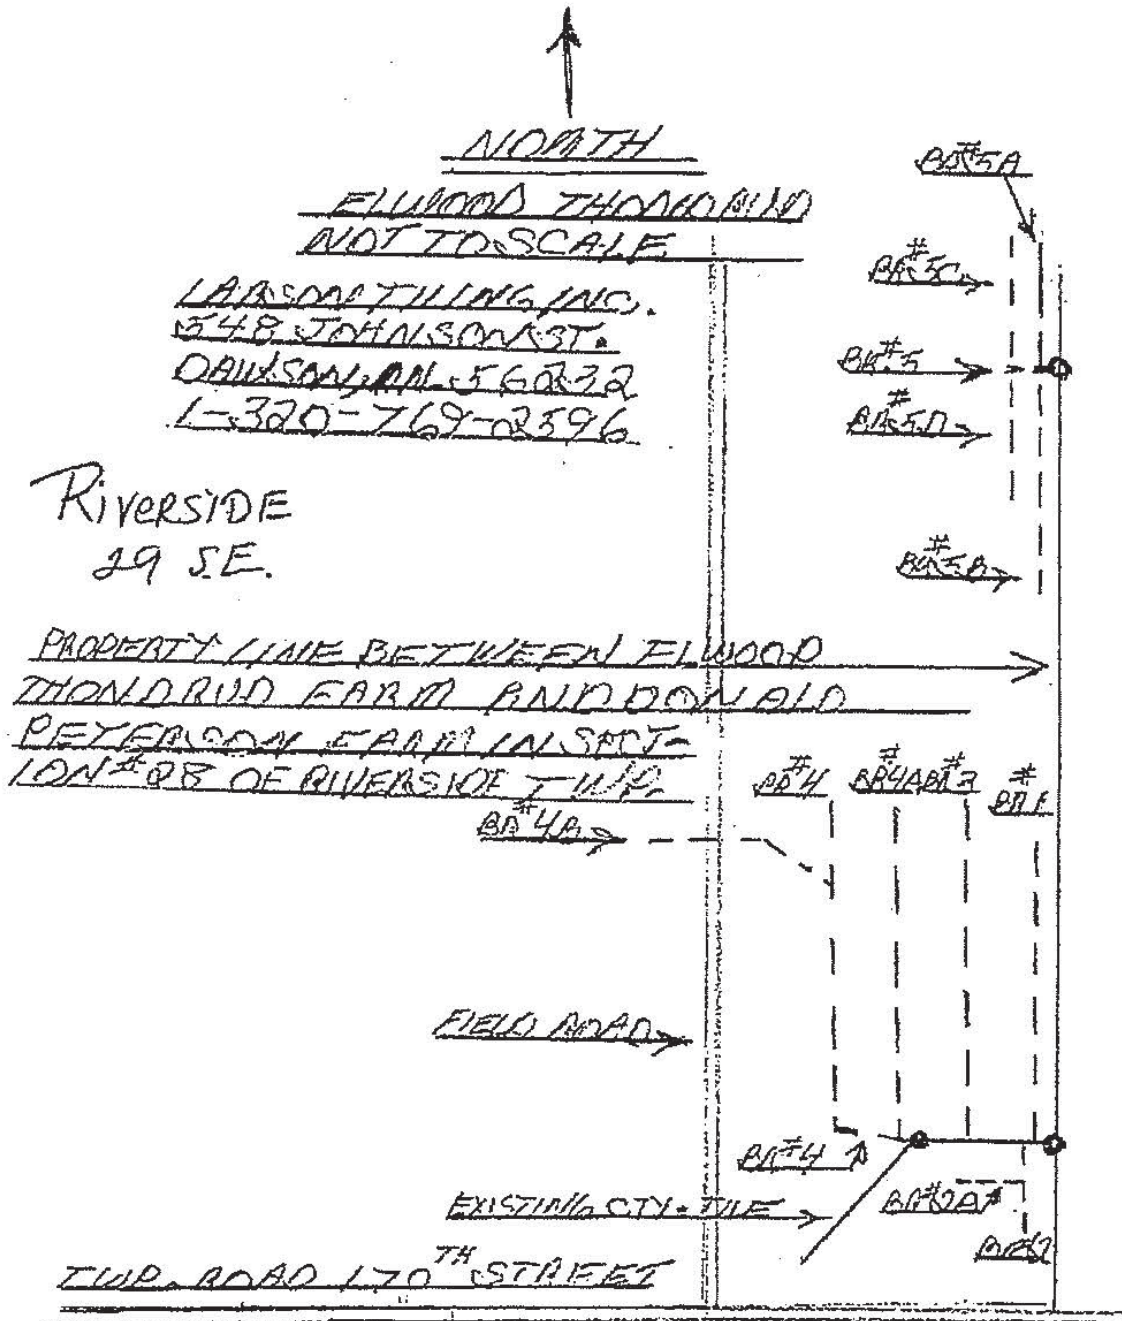 NORTH
ELWOOD THONDRUD
NOT TO SCALE
LARSON TILING, INC.
548 JOHNSON ST.
DAWSON, MN. 56232
1-320-769-2596
RiveRSiDE
29 S.E.
BR#5A
BR#5C
BR#5
BR#5D
BR#5B
PROPERTY LINE BETWEEN ELWOOD
THONDRUD FARM AND DONALD
PETERSON FARM IN SECT-
ION #28 OF RIVERSIDE TWP.
BR#4 BR#4A BR#3 BR#1
BR#4B
FIELD ROAD
BR#4
EXISTING CTY. TILE
BR#2A
BR#2
TWP. ROAD 170TH STREET